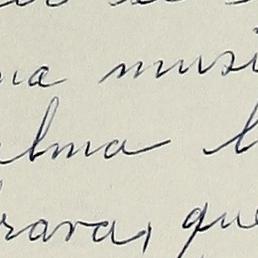 ua musi
alma l
rava, que